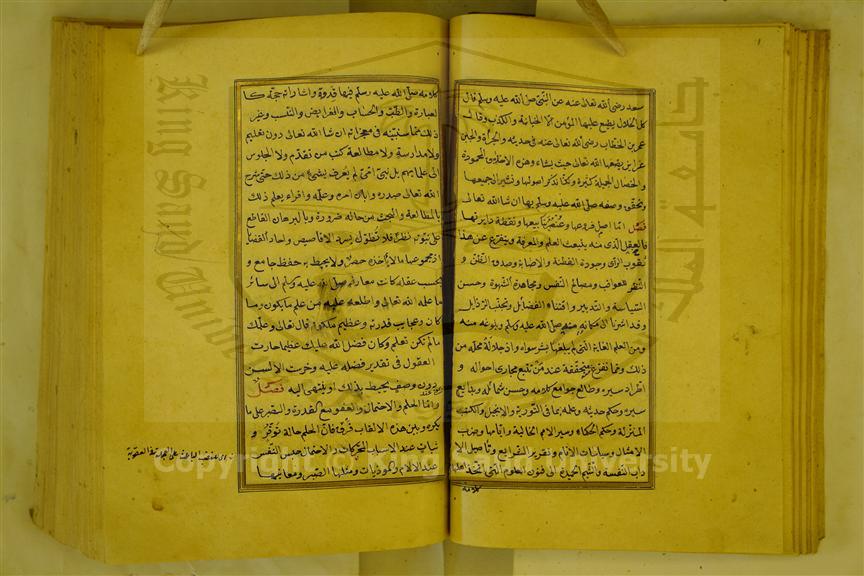 سعد رضى الله تعالى عنه عن النبى صلى الله عليه وسلم قال
كل الخلال يطبع عليها المؤمن الا الخيانة والكذب وقال
عمر بن الخطاب رضى الله تعالى عنه فى حديثه والجرأة والجبن
غرايز يضعها الله تعالى حيث يشاء وهذه الاخلاق المحمودة
والخصال الجميلة كثيرة ولكنا نذكر اصولها ونشير الى جميعها
ونحقق وصفه صلى الله عليه وسلم بها ان شا الله تعالى
فصل اما اصل فروعها وعنصر ينابيعها ونقطة دايرتها
فالعقل الذى منه ينبعث العلم والمعرفة ويتفرع عن هذا
ثقوب الرأى وجودة الفطنة والاصابة وصدق الظن و
النظر للعواقب ومصالح النفس ومجاهدة الشهوة وحسن
السياسة والتدبير واقتناء الفضائل وتجنب الرذايل
وقد اشرنا الى مكانه منه صلى الله عليه وسلم وبلوغه منه
ومن العلم الغاية التى لم يبلغها بشر سواه واذ جلالة محله من
ذلك ومما تفرع منه متحققة عند من تتبع مجارى احواله و
اطراد سيره وطالع جوامع كلامه وحسن شمائله وبدايع
سيره وحكم حديثه وعلمه بما فى التورية والانجيل والكتب
المنزلة وحكم الحكماء وسير الامم الخالية وايامها وضرب
الامثال وسياسات الانام وتقرير الشرايع وتاصيل الا
داب النفسة والشيم الحميدة الى فنون العلوم التى اتخذ اهلها
كلامه
كلامه صلى الله عليه وسلم فيها قدوة واشاراته حجة كا
لعبارة والطب والحساب والفرايض والنسب وغير
ذلك مما سنبينه فى معجزاته ان شا الله تعالى دون تعليم
ولا مدارسة ولا مطالعة كتب من تقدم ولا الجلوس
الى علمايهم بل نبى امى لم يعرف بشئ من ذلك حتى شرح
الله تعالى صدره وابان امره وعلمه واقراه يعلم ذلك
بالمطالعة والبحث عن حاله ضرورة وبالبرهان القاطع
على نبوته نظرا فلا نطول بسرد الاقاصيص واحاد القضايا
اذ مجموعها ما لا يأخذه حصر ولا يحيط به حفظ جامع و
بحسب عقله كانت معارفه صلى الله عليه وسلم الى سائر
ما علمه الله تعالى واطلعه عليه من علم ما يكون وما
كان وعجايب قدرته وعظيم ملكوته قال تعالى وعلمك
ما لم تكن تعلم وكان فضل الله عليك عظيما حارت
العقول فى تقدير فضله عليه وخرست الالسن
دون وصف يحيط بذلك او ينتهى اليه فصل
واما الحلم والاحتمال والعفو مع القدرة والصبر على ما
يكره وبين هذه الالقاب فرق فان الحلم حالة توقر و
ثبات عند الاسباب المحركات والاحتمال حبس النفس
عند الآلام والموذيات ومثلها الصبر ومعانيها
Copyright © King Saud University
King Saud University
جامعة الملك سعود